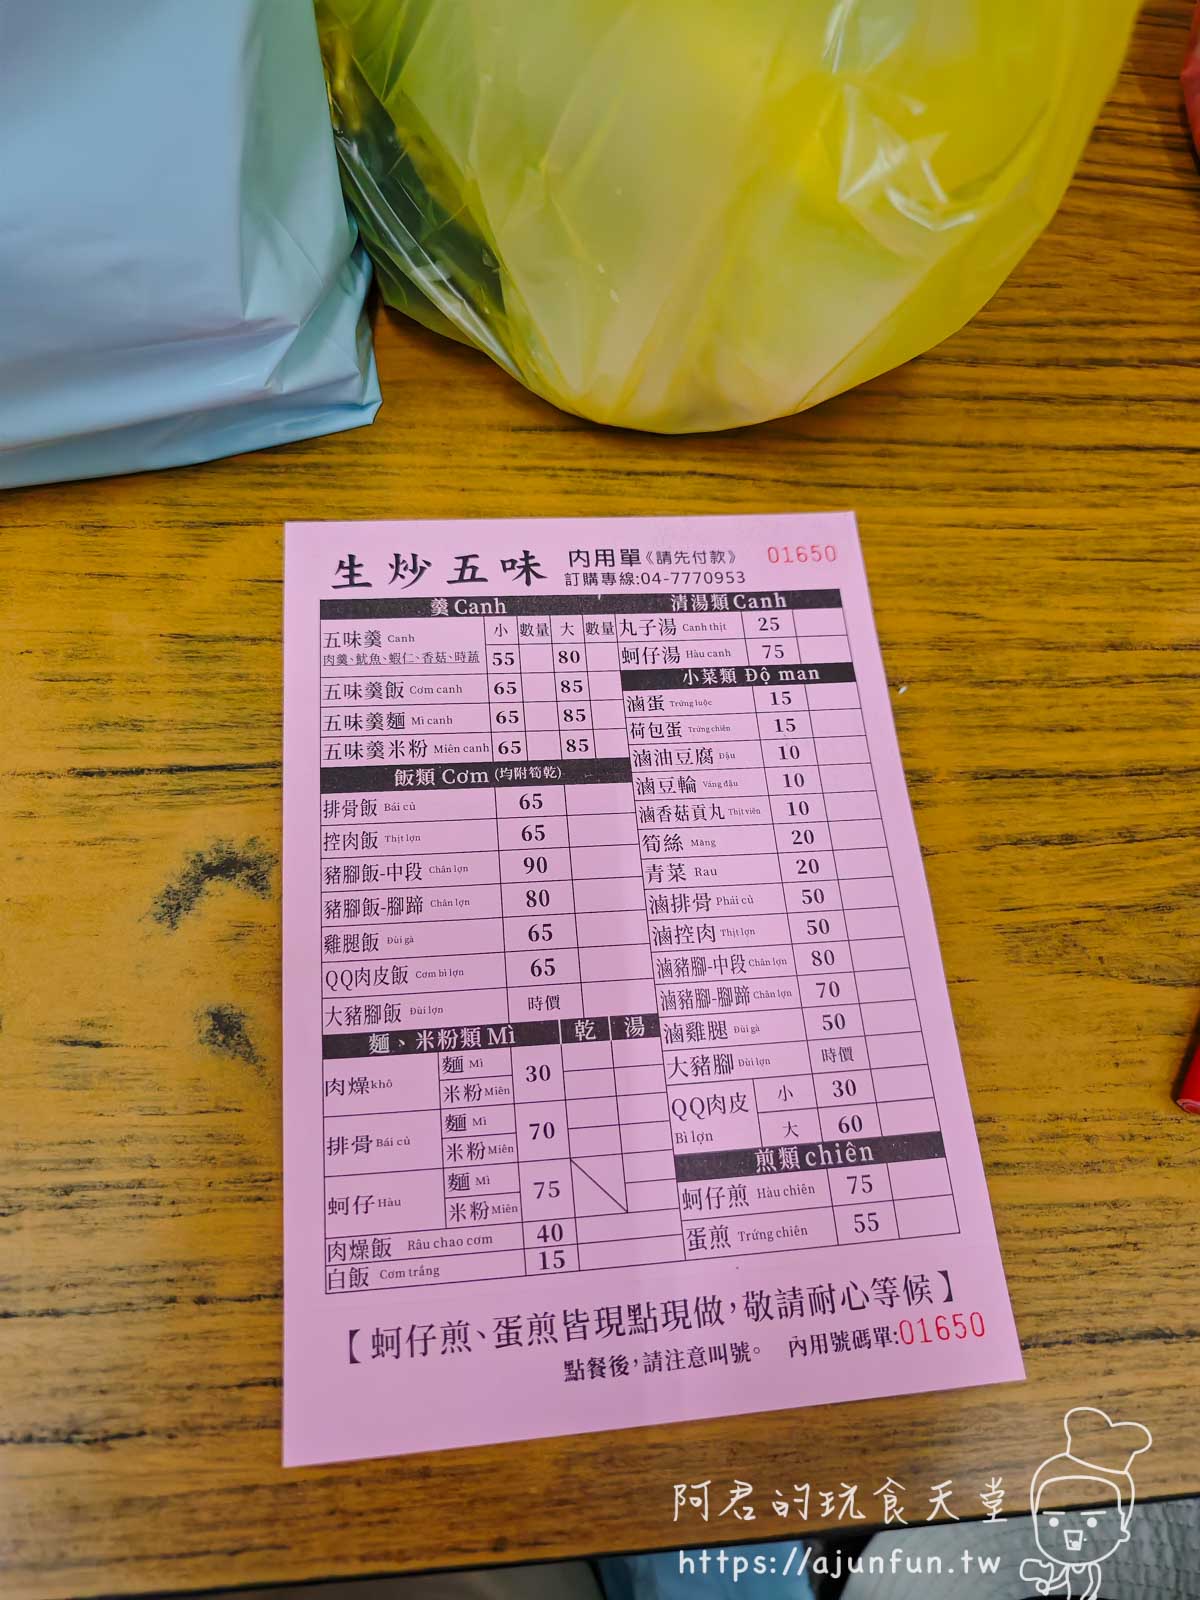 生炒五味 內用單《請先付款》 01650
訂購專線:04-7770953
羹 Canh
小 數量 大 數量
五味羹 Canh 55 80
肉羹、魷魚、蝦仁、香菇、時蔬
五味羹飯 Cơm canh 65 85
五味羹麵 Mì canh 65 85
五味羹米粉 Miên canh 65 85
飯類 Cơm (均附筍乾)
排骨飯 Bái cù 65
控肉飯 Thịt lợn 65
豬腳飯-中段 Chân lợn 90
豬腳飯-腳蹄 Chân lợn 80
雞腿飯 Đùi gà 65
QQ肉皮飯 Cơm bì lợn 65
大豬腳飯 Đùi lợn 時價
麵、米粉類 Mì 乾 湯
肉燥 khô 麵 Mì 米粉 Miên 30
排骨 Bái cù 麵 Mì 米粉 Miên 70
蚵仔 Hàu 麵 Mì 米粉 Miên 75
肉燥飯 Râu chao cơm 40
白飯 Cơm trắng 15
清湯類 Canh
丸子湯 Canh thịt 25
蚵仔湯 Hàu canh 75
小菜類 Độ man
滷蛋 Trứng luộc 15
荷包蛋 Trứng chiên 15
滷油豆腐 Đậu 10
滷豆輪 Váng đậu 10
滷香菇貢丸 Thịt viên 10
筍絲 Măng 20
青菜 Rau 20
滷排骨 Phái cù 50
滷控肉 Thịt lợn 50
滷豬腳-中段 Chân lợn 80
滷豬腳-腳蹄 Chân lợn 70
滷雞腿 Đùi gà 50
大豬腳 Đùi lợn 時價
QQ肉皮 Bì lợn 小 30
大 60
煎類 chiên
蚵仔煎 Hàu chiên 75
蛋煎 Trứng chiên 55
【蚵仔煎、蛋煎皆現點現做,敬請耐心等候】
點餐後,請注意叫號。 內用號碼單:01650
阿君的玩食天堂
https://ajunfun.tw